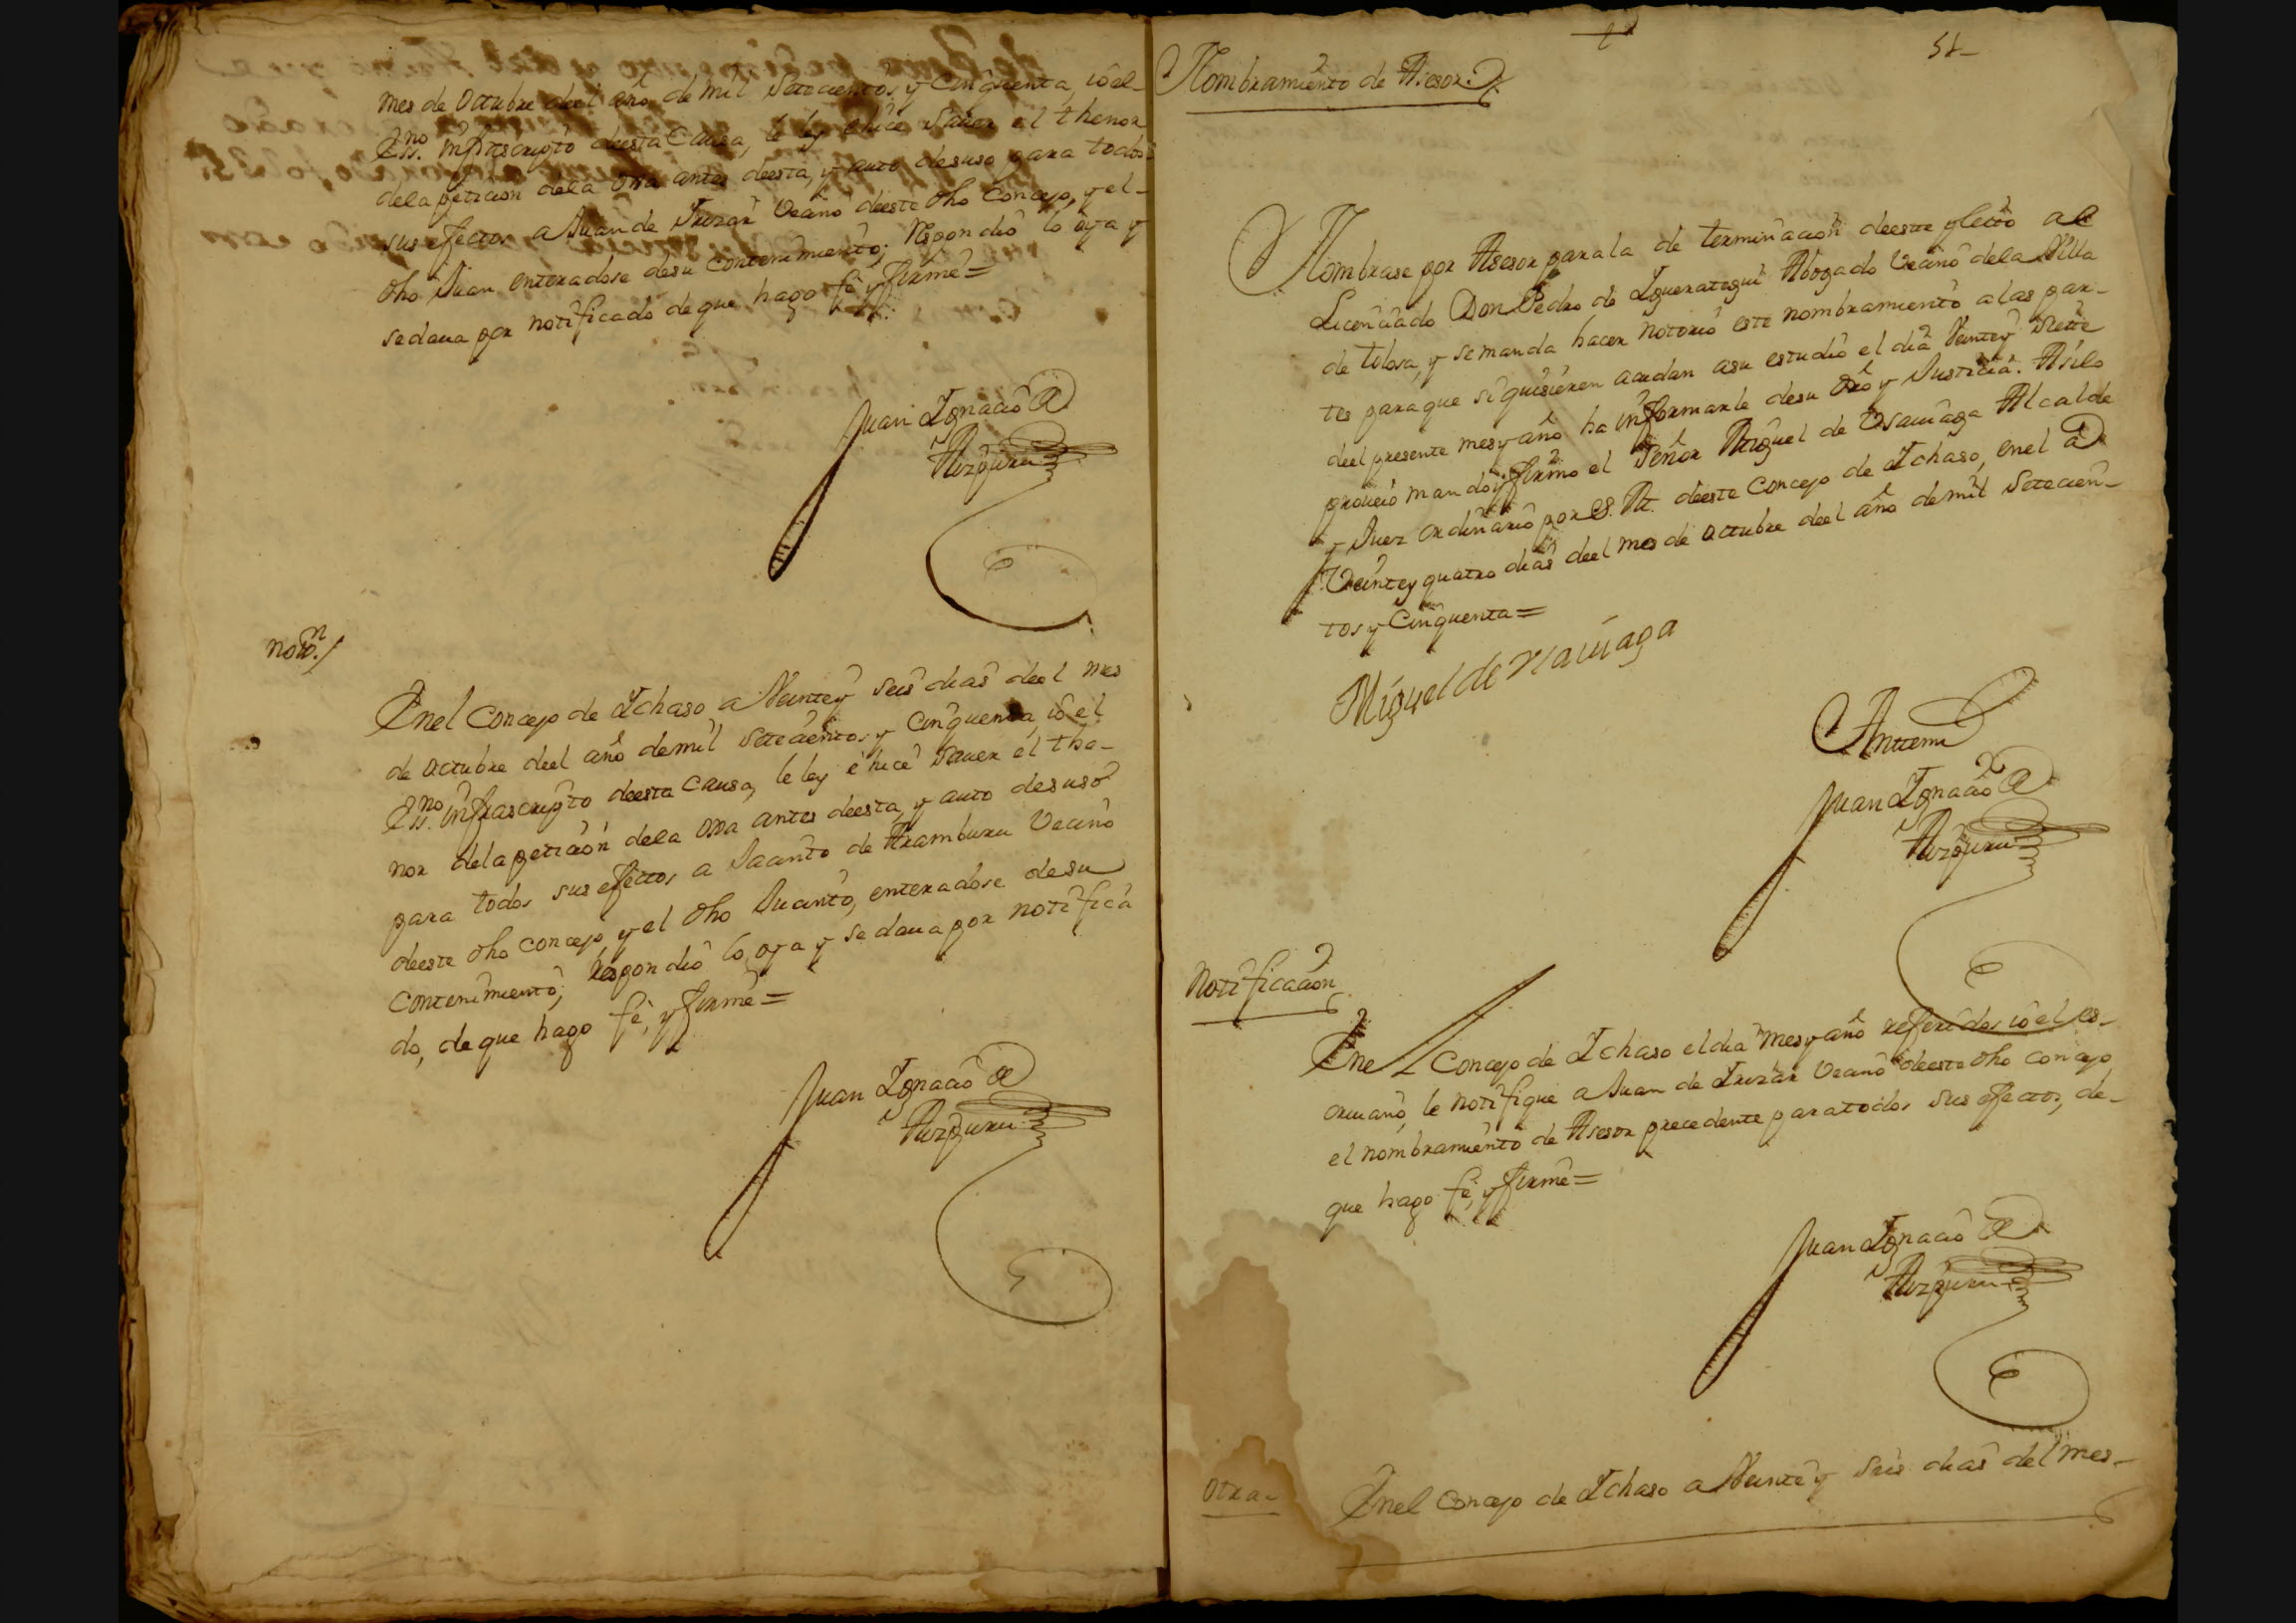 mes de octubre deel año de mil Setecientos y Cinquenta, io el
Essno. infrascripto deesta Causa, le ley e hice Sauer el thenor
dela peticion dela otra antes deesta, y auto desuso para todos
sus efectos a Juan de Irizar Vecino deeste dho Concejo, y el
dho Juan enteradose desu contenimiento; Respondio lo oya y
sedaua por notificado de que hago fe y firme=
Juan Ignacio de
Aizpuru
Noton./
Enel Concejo de Ichaso a Veintey seis dias deel mes
de octubre deel año demil setecientos y cinquenta, io el
Essno. infrascripto deesta Causa, le ley e hice Sauer el the-
nor dela peticion dela otra antes deesta, y auto desuso
para todos sus efectos a Jacinto de Aramburu Vecino
deeste dho concejo, y el dho Jacinto, enteradose desu
contenimiento; respondio lo oya y se daua por notifica
do, de que hago fe, y firme=
Juan Ignacio de
Aizpuru
51
Nombramiento de Asesor.
Nombrase por Asesor parala de terminacion deeste pleito al
Licenciado Don Pedro de Iguerategui Abogado Vecino dela Villa
de tolosa, y semanda hacer notorio este nombramiento alas par-
tes paraque siquisieren acudan asu estudio el dia Veintey siette
deel presente mesyaño ha informarle desu dro y Justicia. Asilo
proueio mandoy firmo el Señor Miguel de Osauiaga Alcalde
y Juez ordinario por S. M. deeste Concejo de Ichaso, enel a
Veintey quatro dias deel mes de octubre deel año demil Setecien-
tos y Cinquenta=
Miguel de
Antemi
Juan Ignacio de
Aizpuru
Notificacion
Enel Concejo de Ichaso eldia mesyaño referidos io el es-
criuano, le notifique a Juan de Irizar Vecino deeste dho concejo
el nombramiento de Asesor precedente paratodos sus efectos, de-
que hago fe, y firme=
Juan Ignacio de
Aizpuru
Otra-
Enel Concejo de Ichaso a Veintey seis dias del mes-